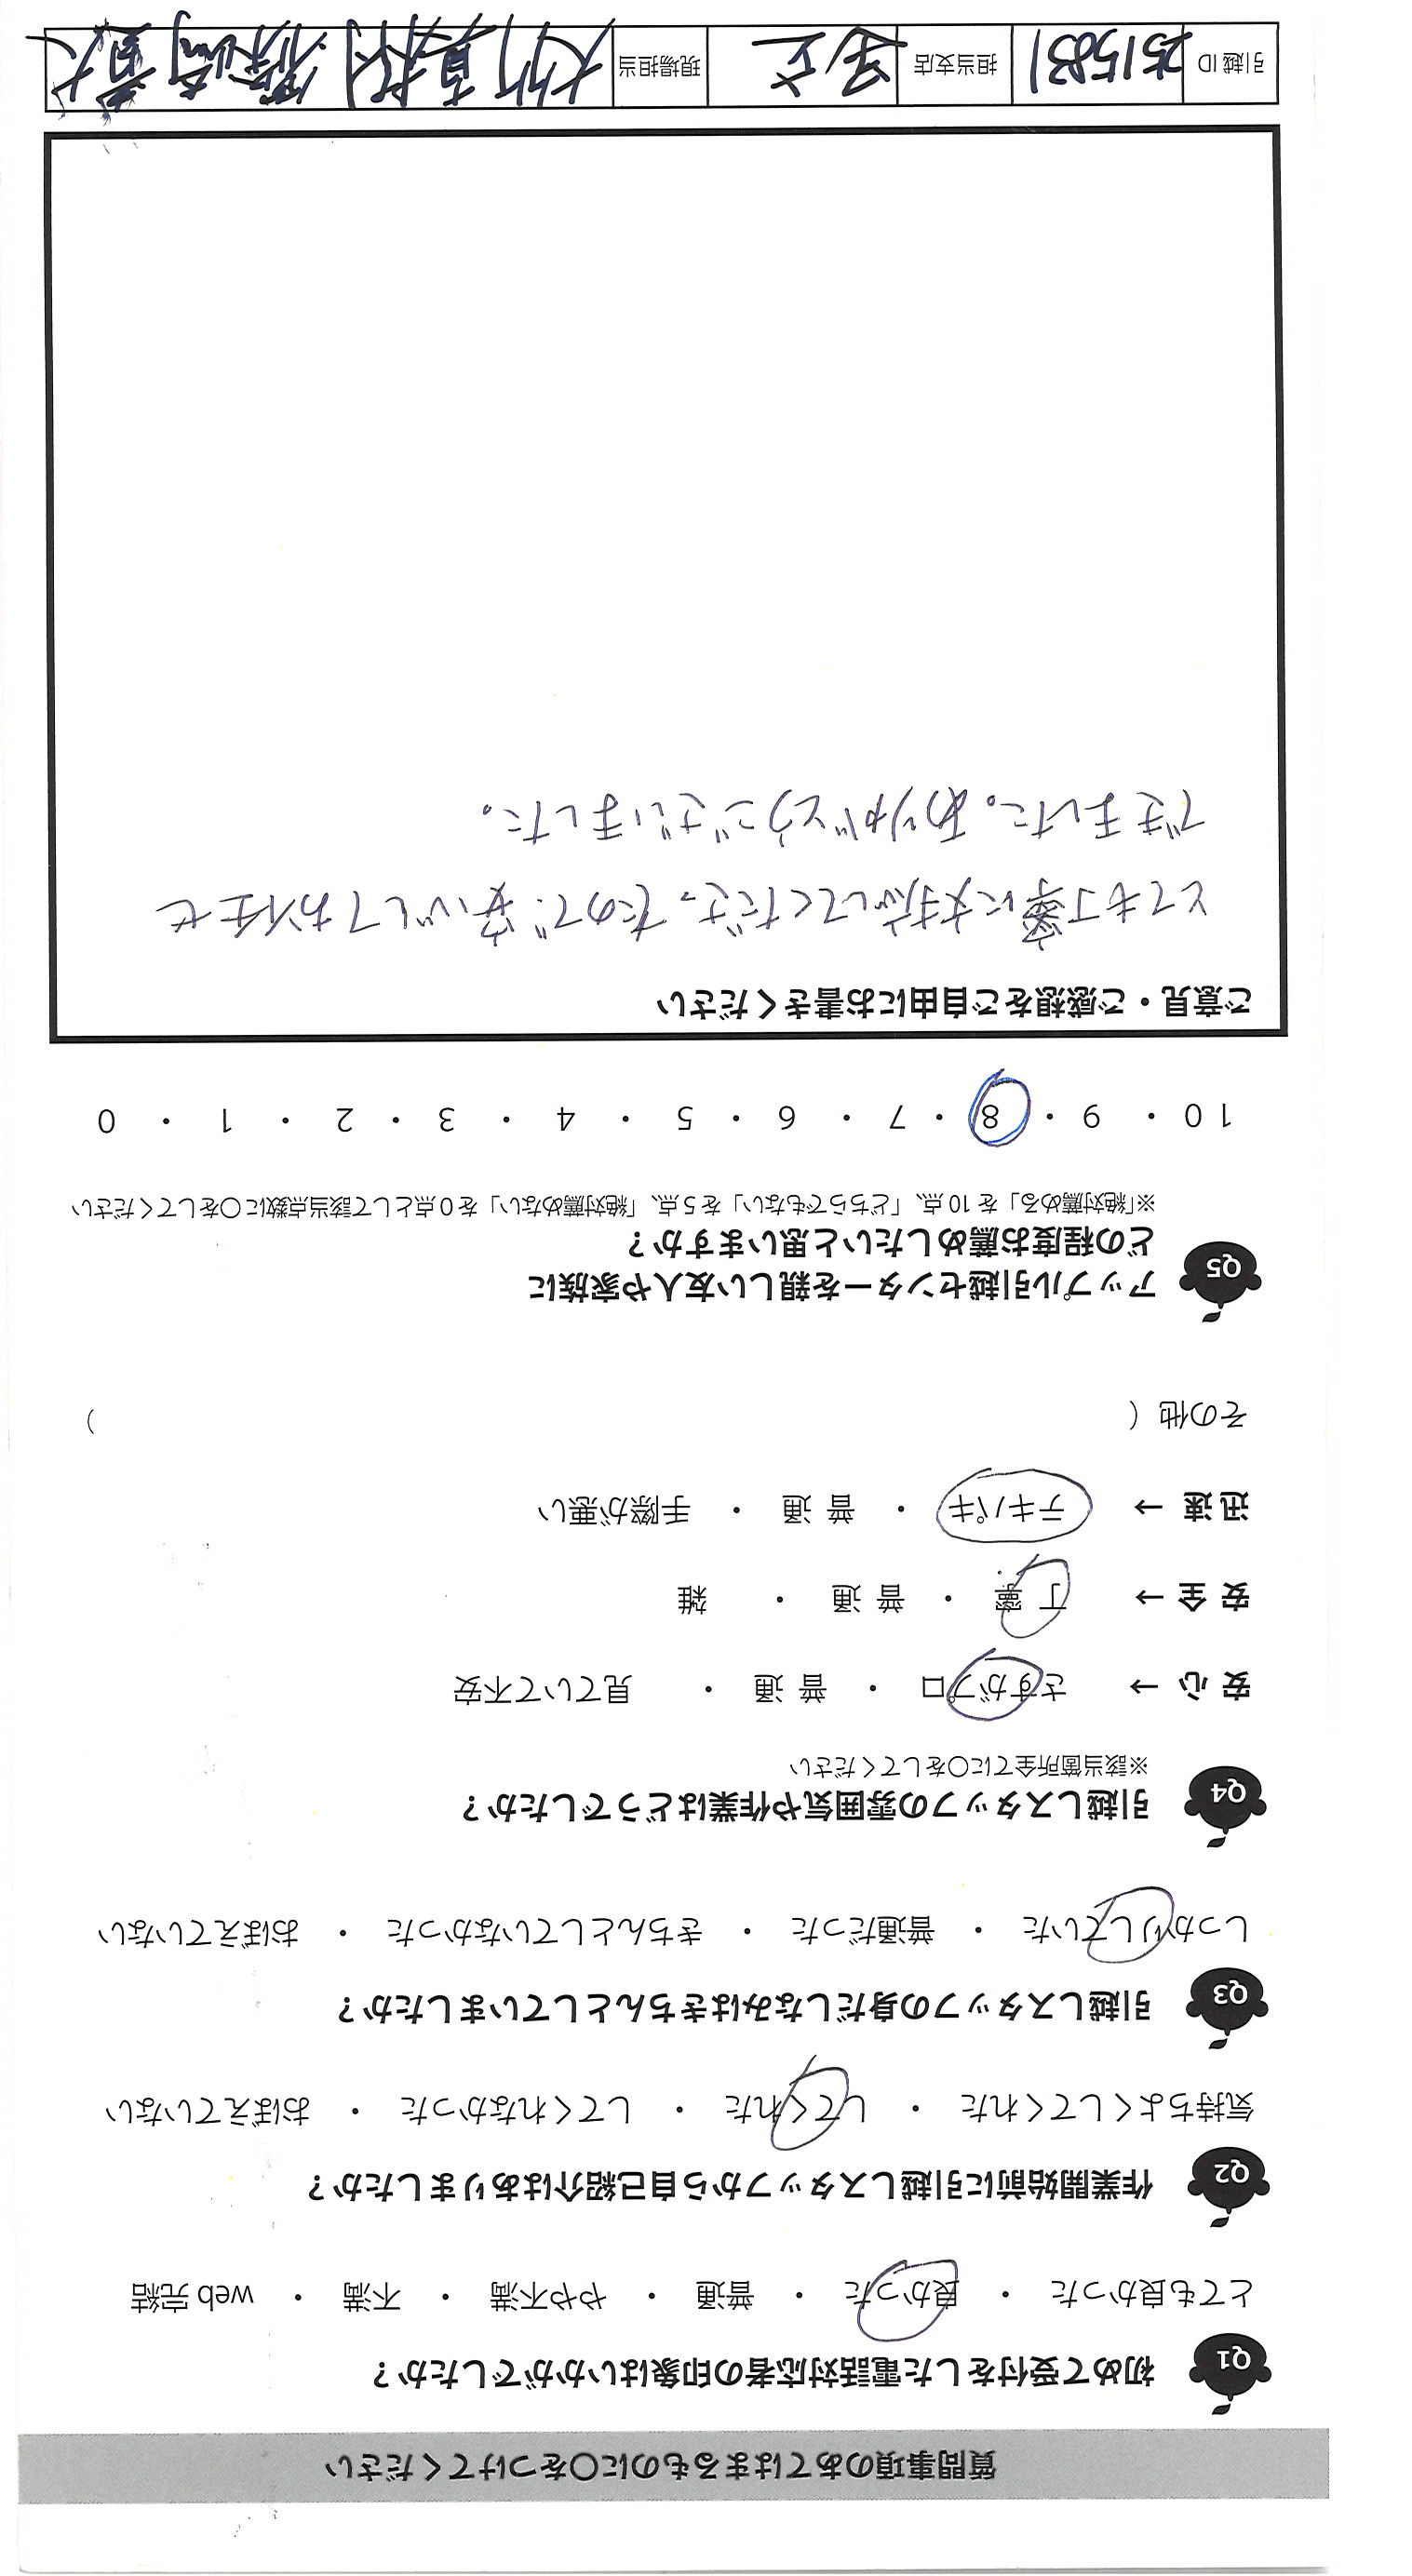 質問事項のあてはまるものに〇をつけてください
Q1 初めて受付をした電話対応者の印象はいかがでしたか？
とても良かった ・ 良かった ・ 普通 ・ やや不満 ・ 不満 ・ web 完結
Q2 作業開始前に引越しスタッフから自己紹介はありましたか？
気持ちよくしてくれた ・ してくれた ・ してくれなかった ・ おぼえていない
Q3 引越しスタッフの身だしなみはきちんとしていましたか？
しっかりしていた ・ 普通だった ・ きちんとしていなかった ・ おぼえていない
Q4 引越しスタッフの雰囲気や作業はどうでしたか？
※該当箇所全てに〇をしてください
安 心 → さすがプロ ・ 普 通 ・ 見ていて不安
安 全 → 丁 寧 ・ 普 通 ・ 雑
迅 速 → テキパキ ・ 普 通 ・ 手際が悪い
その他（ ）
Q5 アップル引越センターを親しい友人や家族に
どの程度お薦めしたいと思いますか？
※「絶対薦める」を 10 点、「どちらでもない」を 5 点、「絶対薦めない」を 0 点として該当点数に〇をしてください
10 ・ 9 ・ 8 ・ 7 ・ 6 ・ 5 ・ 4 ・ 3 ・ 2 ・ 1 ・ 0
ご意見・ご感想をご自由にお書きください
とても丁寧に対応してくださったので、安心してお任せ
できました。ありがとうございました。
引越 ID 2515831 担当支店 足立 現場担当